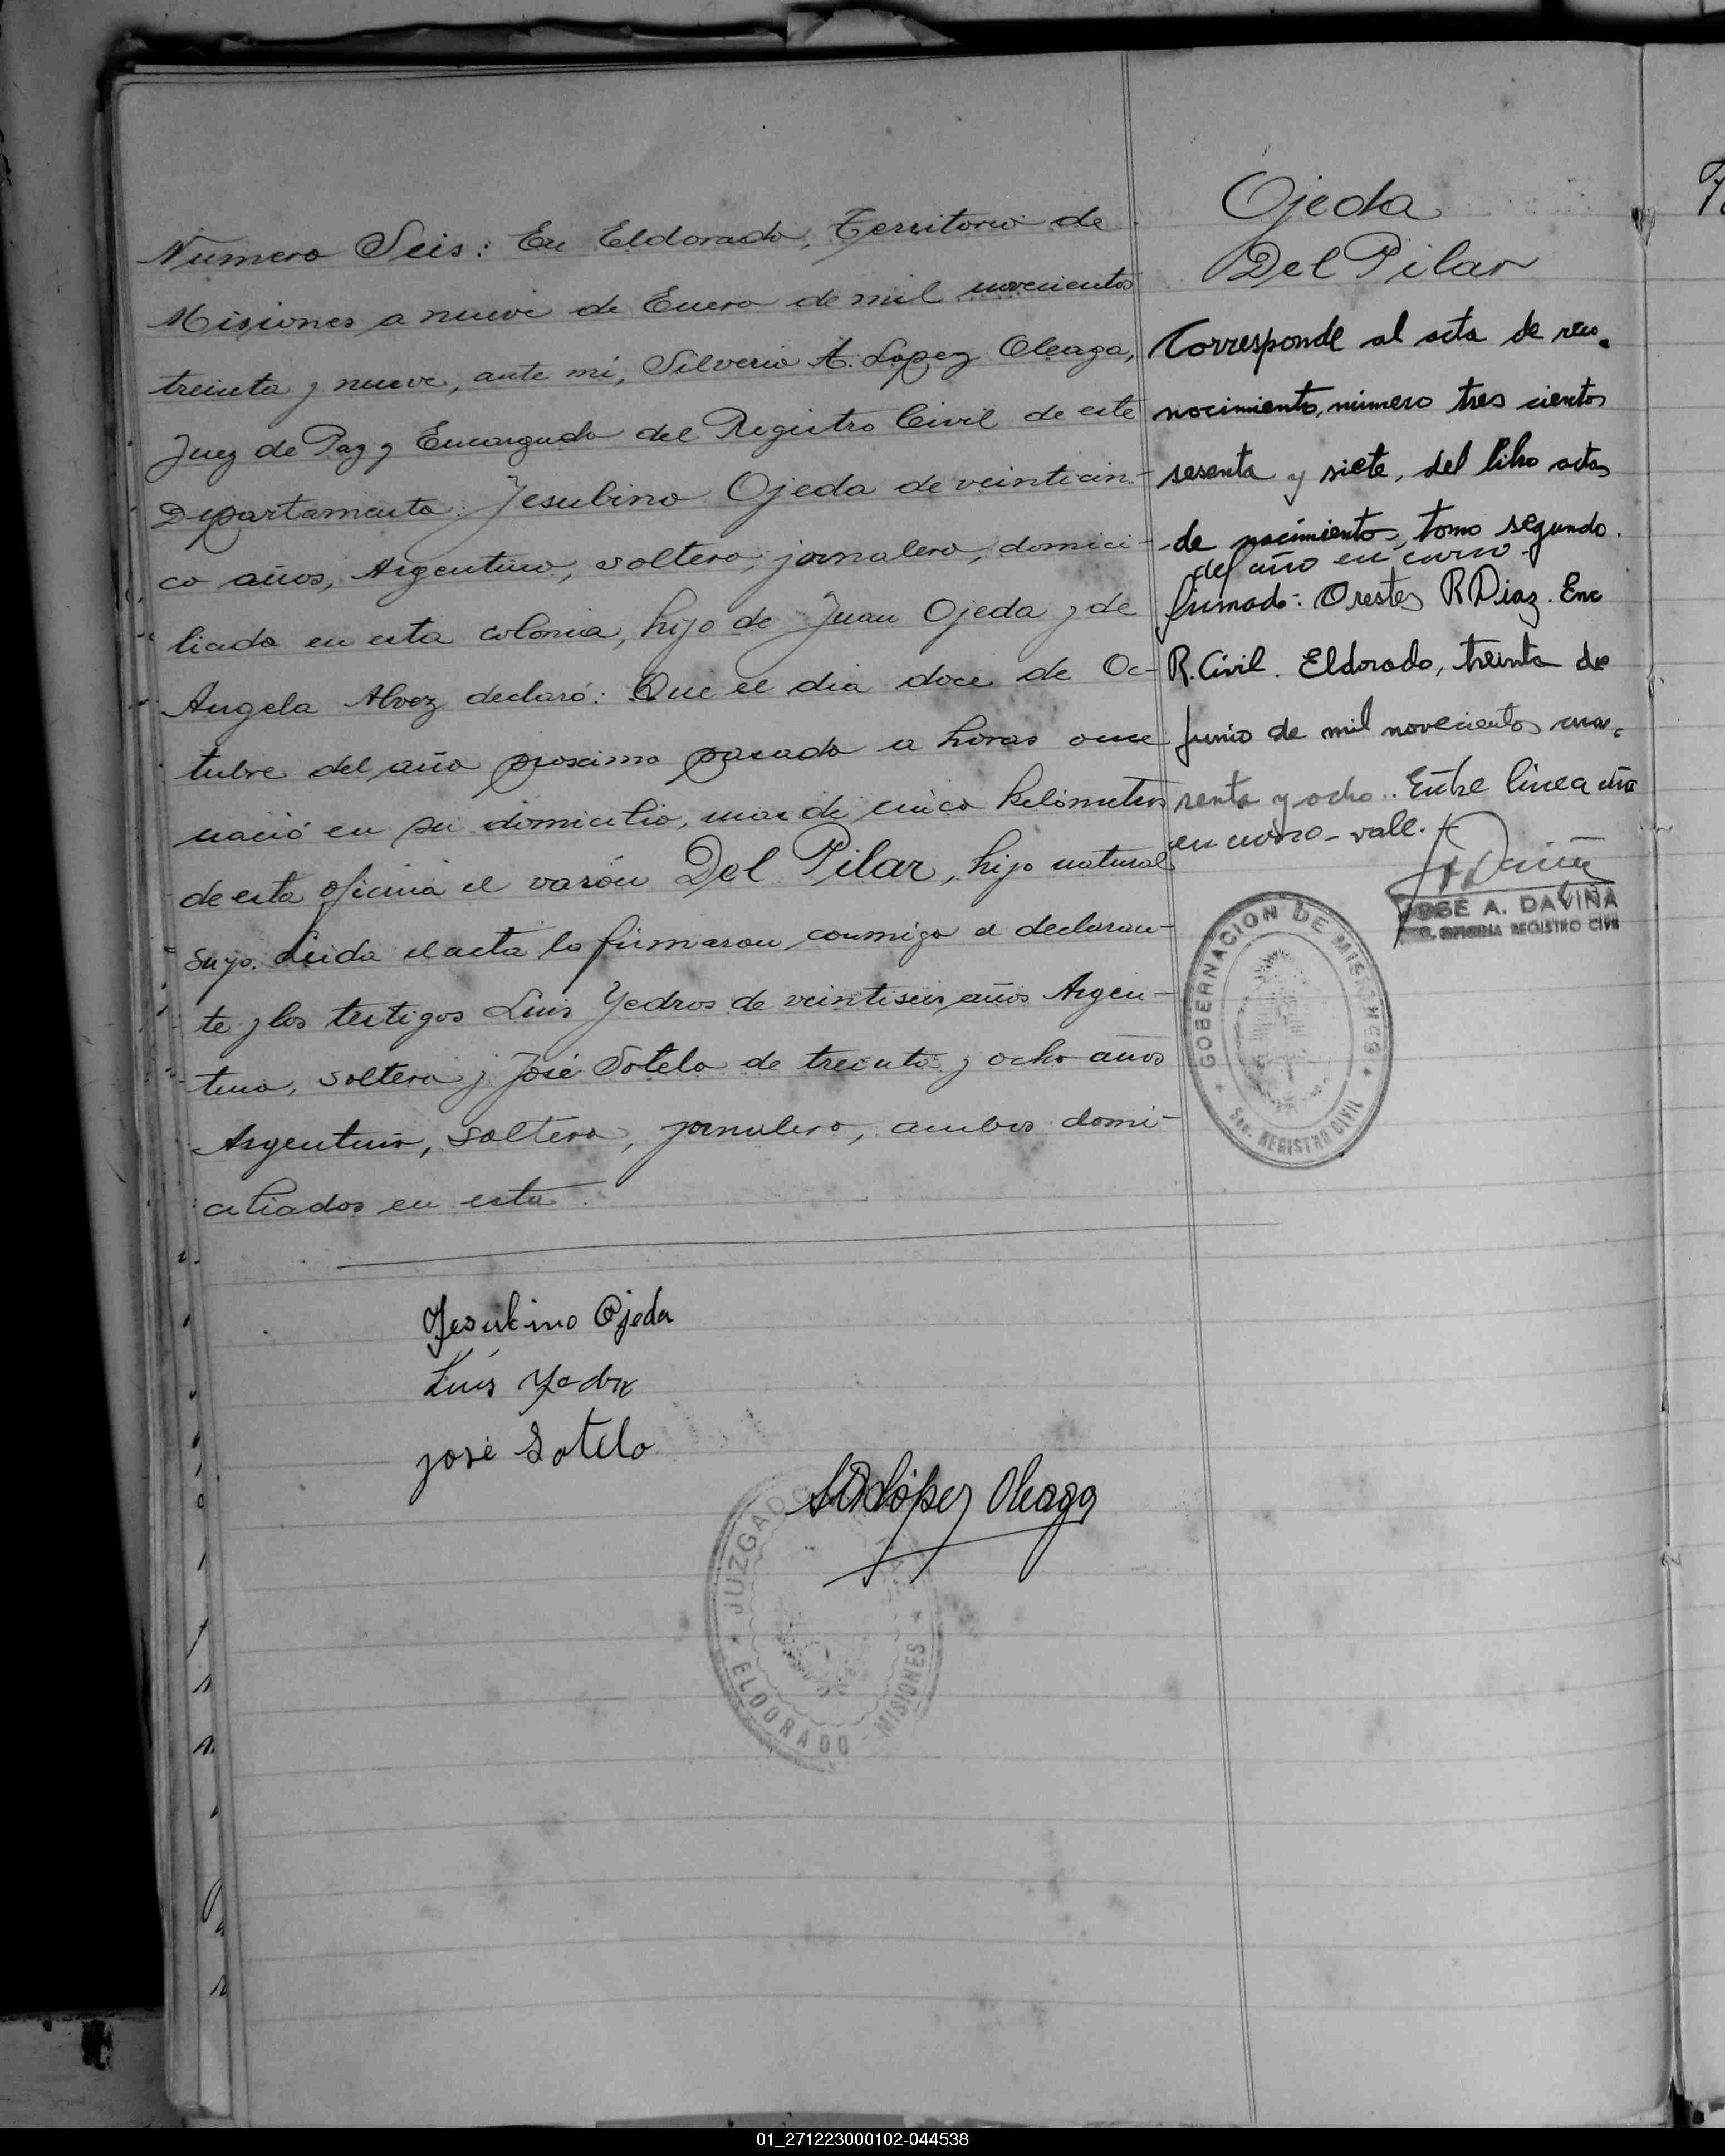 Numero Seis: En Eldorado, Territorio de
Misiones a nueve de Enero de mil novecientos
treinta y nueve, ante mí, Silverio A. Lopez Oleaga,
Juez de Paz y Encargado del Registro Civil de este
Departamento: Jesubino Ojeda de veinticin-
co años, Argentino, soltero, jornalero, domici-
liado en esta colonia, hijo de Juan Ojeda y de
Angela Alvez declaró: Que el dia doce de Oc-
tubre del año proximo pasado a horas once
nació en su domicilio, mas de cinco kilómetros
de esta oficina el varón Del Pilar, hijo natural
suyo. Leida el acta la firmaron conmigo el declaran-
te y los testigos Luis Yedros de veintiseis años Argen-
tino, soltero y José Sotelo de treinta y ocho años
Argentino, soltero, jornalero, ambos domi-
ciliados en esta.
Jesubino Ojeda
Luis
José Sotelo
López Oleaga
JUZGADO
ELDORADO MISIONES
Ojeda
Del Pilar
Corresponde al acta de reco-
nocimiento, número tres cientos
sesenta y siete, del libro actas
de nacimientos, tomo segundo.
del año en curso
firmado: Orestes R Diaz. Enc
R. Civil. Eldorado, treinta de
Junio de mil novecientos cua-
renta y ocho. Entre linea año
en curso - vale.
JOSE A. DAVIÑA
OFICINA REGISTRO CIVIL
GOBERNACION DE MISIONES
Sec. REGISTRO CIVIL
01_271223000102-044538